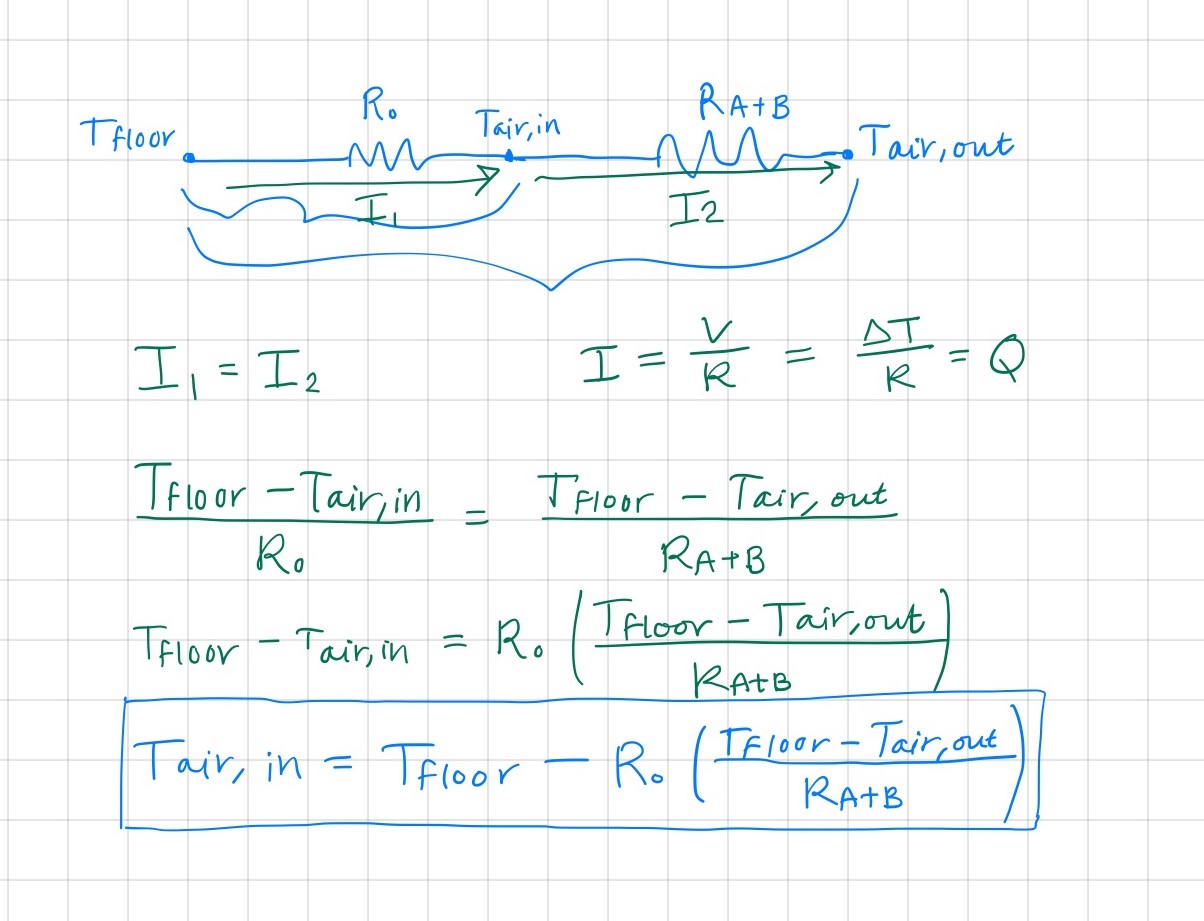 R₀ R_A+B
T_floor T_air,in T_air,out
I₁ I₂
I₁ = I₂ I = V/R = ΔT/R = Q
(T_floor − T_air,in)/R₀ = (T_floor − T_air,out)/R_A+B
T_floor − T_air,in = R₀ ((T_floor − T_air,out)/R_A+B)
T_air,in = T_floor − R₀ ((T_floor − T_air,out)/R_A+B)